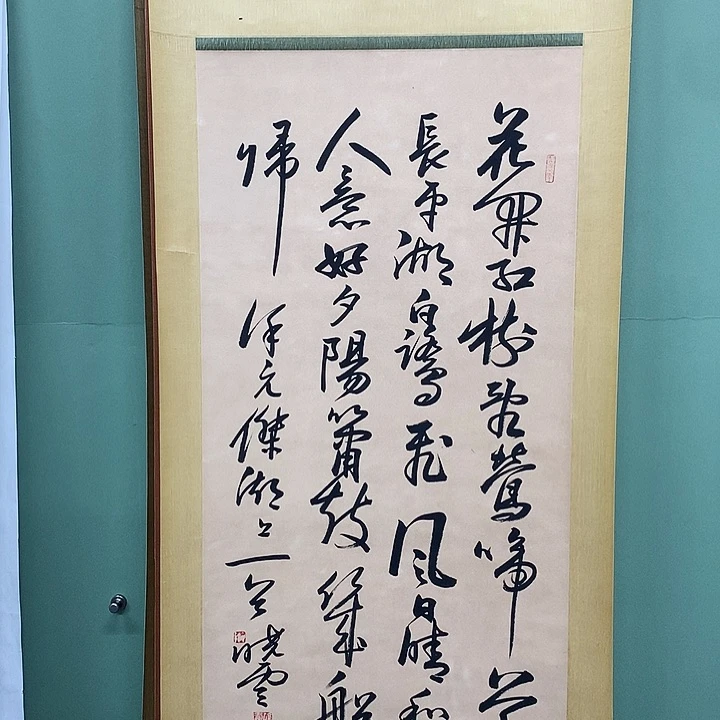 花開紅樹亂鶯啼草
長平湖白鷺飛風日晴和
人意好夕陽簫鼓幾船
歸 徐元傑湖上一首 曉雲